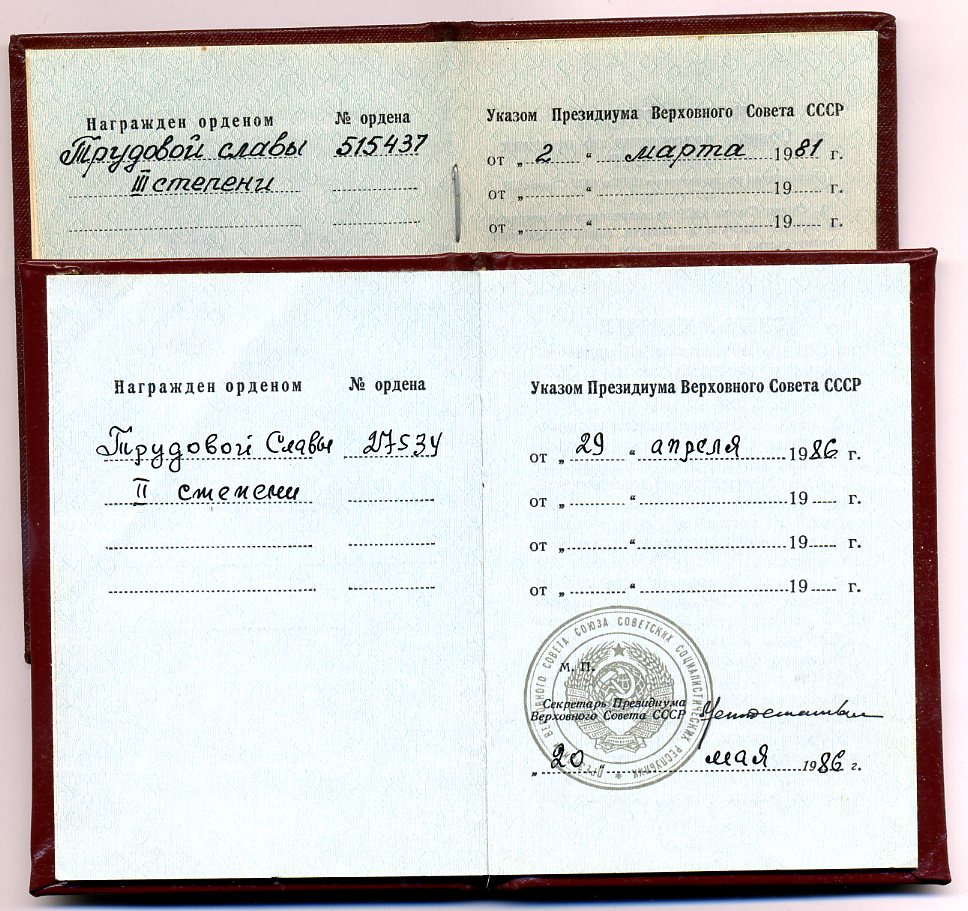 Награжден орденом № ордена
Трудовой славы 515437
III степени
Указом Президиума Верховного Совета СССР
от „ 2 “ марта 1981 г.
от „ “ 19 г.
от „ “ 19 г.
Награжден орденом № ордена
Трудовой Славы 27534
II степени
Указом Президиума Верховного Совета СССР
от „ 29 “ апреля 1986 г.
от „ “ 19 г.
от „ “ 19 г.
от „ “ 19 г.
ВЕРХОВНОГО СОВЕТА СОЮЗА СОВЕТСКИХ СОЦИАЛИСТИЧЕСКИХ РЕСПУБЛИК
М. П.
Секретарь Президиума
Верховного Совета СССР
„ 20 “ мая 1986 г.